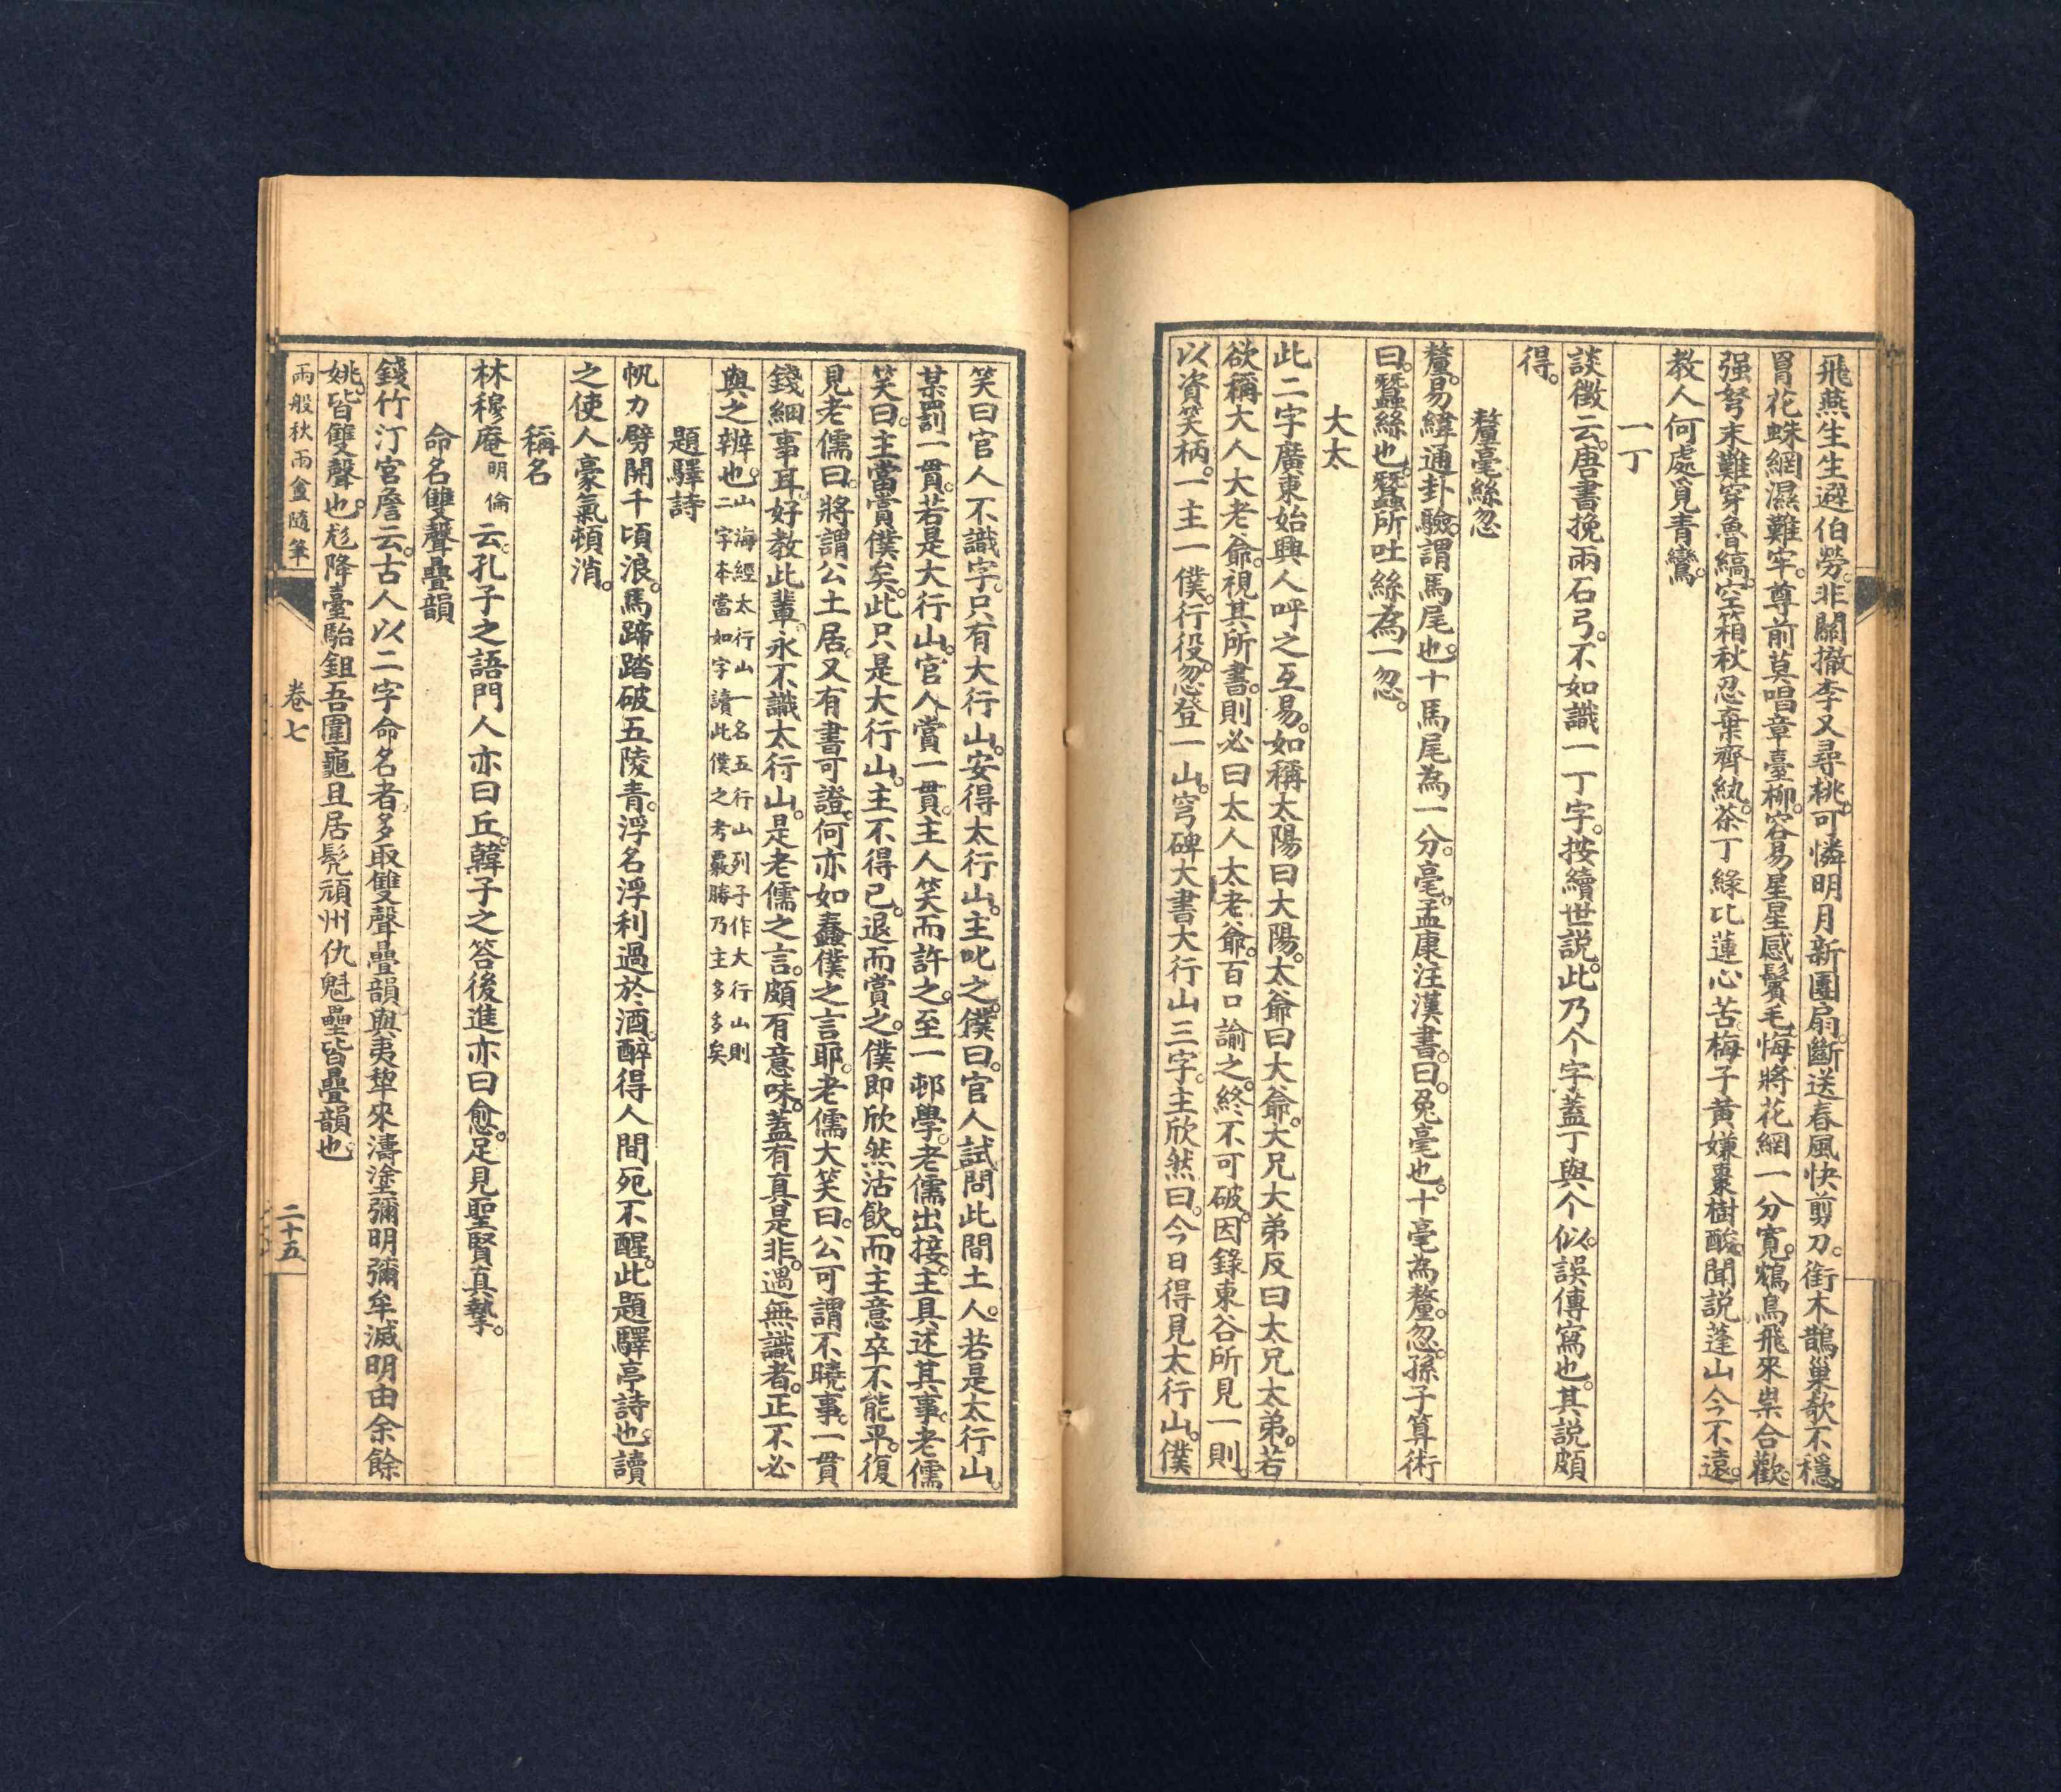 飛燕生生避伯勞。非關撤李又尋桃。可憐明月新團扇。斷送春風快剪刀。銜木鵲巢欹不穩。
罥花蛛網濕難牢。尊前莫唱章臺柳。容易星星感鬢毛。悔將花網一分寬。鴆鳥飛來祟合歡。
强弩末難穿魯縞。空箱秋忍棄齊紈。茶丁綠比蓮心苦。梅子黃嫌棗樹酸。聞説蓬山今不遠。
教人何處覓青鸞。
一丁
談徵云。唐書挽兩石弓。不如識一丁字。按續世説。此乃个字。蓋丁與个似。誤傳寫也。其説頗
得。
釐毫絲忽
釐。易緯通卦驗。謂馬尾也。十馬尾為一分。毫。孟康注漢書。曰。兔毫也。十毫為釐。忽。孫子算術
曰。蠶絲也。蠶所吐絲為一忽。
大太
此二字廣東始興人呼之互易。如稱太陽曰大陽。太爺曰大爺。大兄大弟反曰太兄太弟。若
欲稱大人大老爺。視其所書。則必曰太人太老爺。百口諭之。終不可破。因錄東谷所見一則。
以資笑柄。一主一僕。行役。忽登一山。穹碑大書大行山三字。主欣然曰。今日得見太行山。僕
笑曰官人不識字。只有大行山。安得太行山。主叱之。僕曰。官人試問此間土人。若是太行山。
某罰一貫。若是大行山。官人賞一貫。主人笑而許之。至一邨學。老儒出接。主具述其事。老儒
笑曰。主當賞僕矣。此只是大行山。主不得已。退而賞之。僕即欣然沽飲。而主意卒不能平。復
見老儒曰。將謂公土居。又有書可證。何亦如蠢僕之言耶。老儒大笑曰。公可謂不曉事。一貫
錢細事耳。好教此輩永不識太行山。是老儒之言。頗有意味。蓋有真是非。遇無識者。正不必
與之辨也。山海經太行山一名五行山列子作大行山則
二字本當如字讀此僕之考覈勝乃主多多矣
題驛詩
帆力劈開千頃浪。馬蹄踏破五陵青。浮名浮利過於酒。醉得人間死不醒。此題驛亭詩也。讀
之使人豪氣頓消。
稱名
林穆庵明倫云。孔子之語門人亦曰丘。韓子之答後進亦曰愈。足見聖賢真摯。
命名雙聲疊韻
錢竹汀宮詹云。古人以二字命名者。多取雙聲疊韻。與夷犂來濤塗彌明彌牟滅明由余餘
姚。皆雙聲也。彪降臺駘鉏吾圍龜且居髡頑州仇魁壘皆疊韻也。
兩般秋雨盦隨筆
卷七
二十五